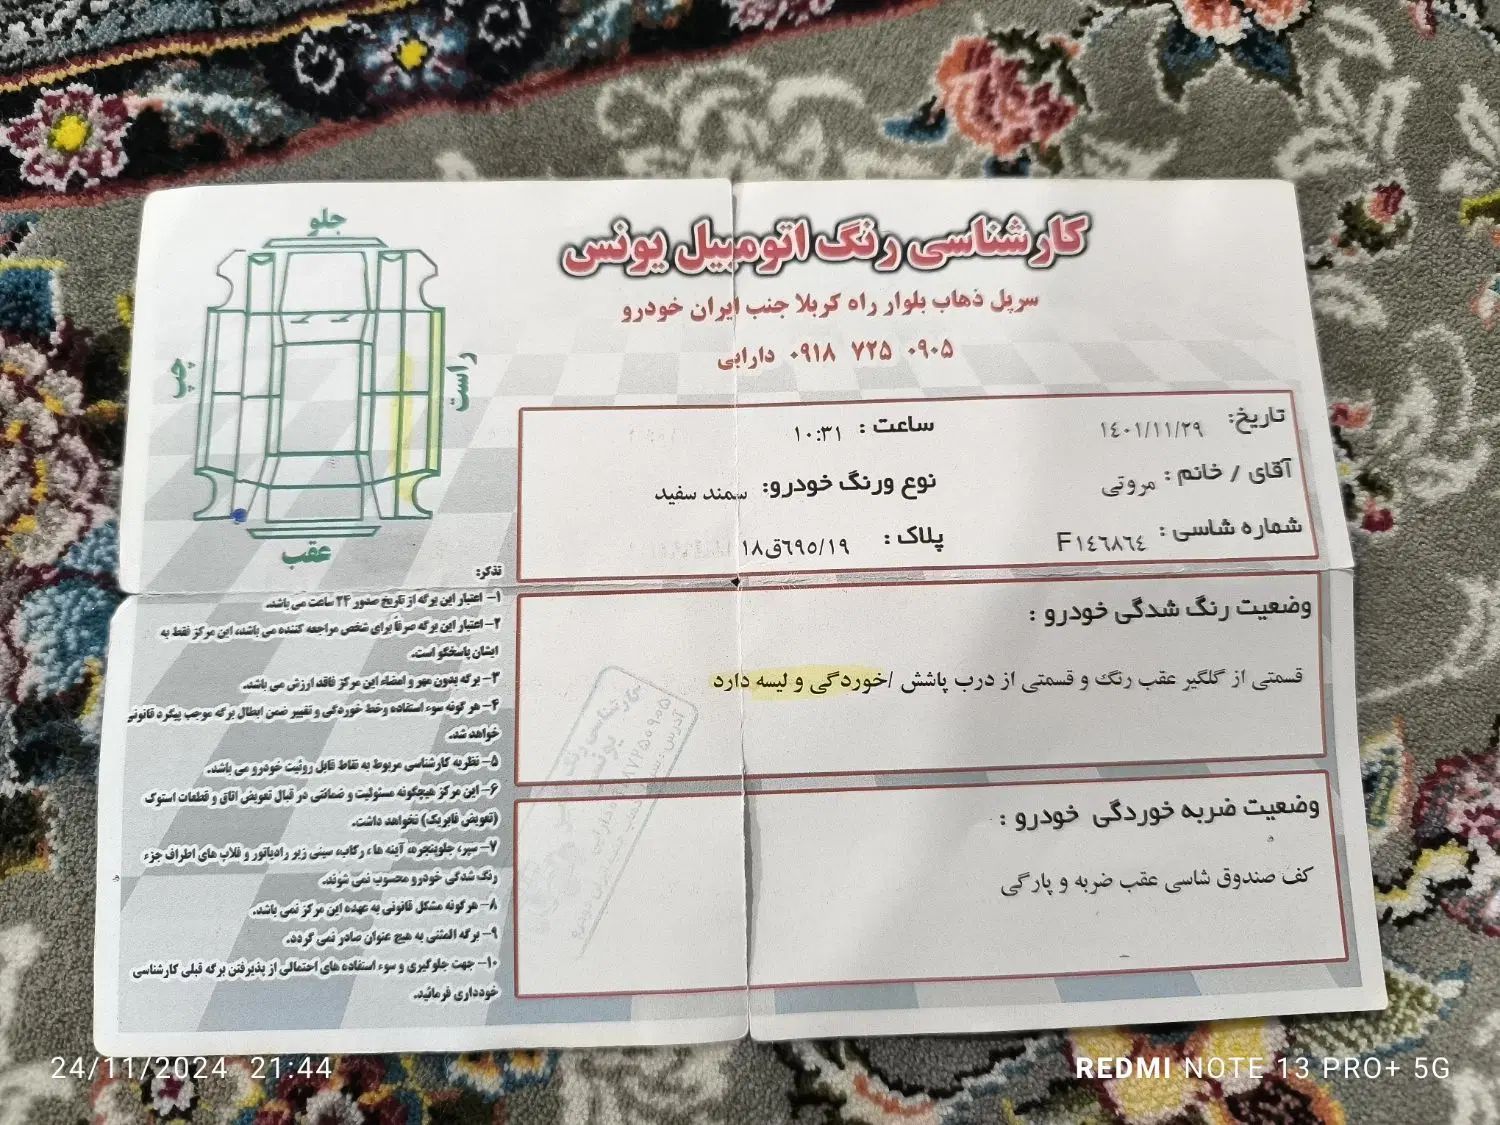 کارشناسی رنگ اتومبیل یونس
سرپل ذهاب بلوار راه کربلا جنب ایران خودرو
۰۹۱۸ ۷۲۵ ۰۹۰۵ دارابی
جلو
راست
چپ
عقب
تاریخ: ۱٤۰۱/۱۱/۲۹ ساعت : ۱۰:۳۱
آقای / خانم : مروتی نوع ورنگ خودرو: سمند سفید
شماره شاسی : F۱٤٦٨٦٤ پلاک : ۱۸ق٦۹٥/۱۹
وضعیت رنگ شدگی خودرو :
قسمتی از گلگیر عقب رنگ و قسمتی از درب پاشش /خوردگی و لیسه دارد
وضعیت ضربه خوردگی خودرو :
کف صندوق شاسی عقب ضربه و پارگی
تذکر:
۱- اعتبار این برگه از تاریخ صدور ۲۴ ساعت می باشد.
۲- اعتبار این برگه صرفاً برای شخص مراجعه کننده می باشد، این مرکز فقط به
ایشان پاسخگو است.
۳- برگه بدون مهر و امضاء این مرکز فاقد ارزش می باشد.
۴- هر گونه سوء استفاده وخط خوردگی و تغییر ضمن ابطال برگه موجب پیگرد قانونی
خواهد شد.
۵- نظریه کارشناسی مربوط به نقاط قابل روئیت خودرو می باشد.
۶- این مرکز هیچگونه مسئولیت و ضمانتی در قبال تعویض اتاق و قطعات استوک
(تعویض فابریک) نخواهد داشت.
۷- سپر، جلوپنجره، آینه ها ، رکاب، سینی زیر رادیاتور و قلاب های اطراف جزء
رنگ شدگی خودرو محسوب نمی شوند.
۸- هرگونه مشکل قانونی به عهده این مرکز نمی باشد.
۹- برگه المثنی به هیچ عنوان صادر نمی گردد.
۱۰- جهت جلوگیری و سوء استفاده های احتمالی از پذیرفتن برگه قبلی کارشناسی
خودداری فرمائید.
کارشناسی رنگ
یونس
24/11/2024 21:44
REDMI NOTE 13 PRO+ 5G